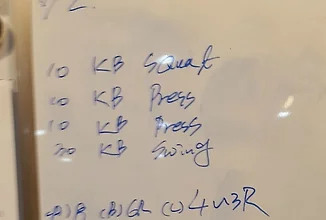 10 KB Squat
10 KB Press
10 KB Press
20 KB Swing
(C) 4 N 3R